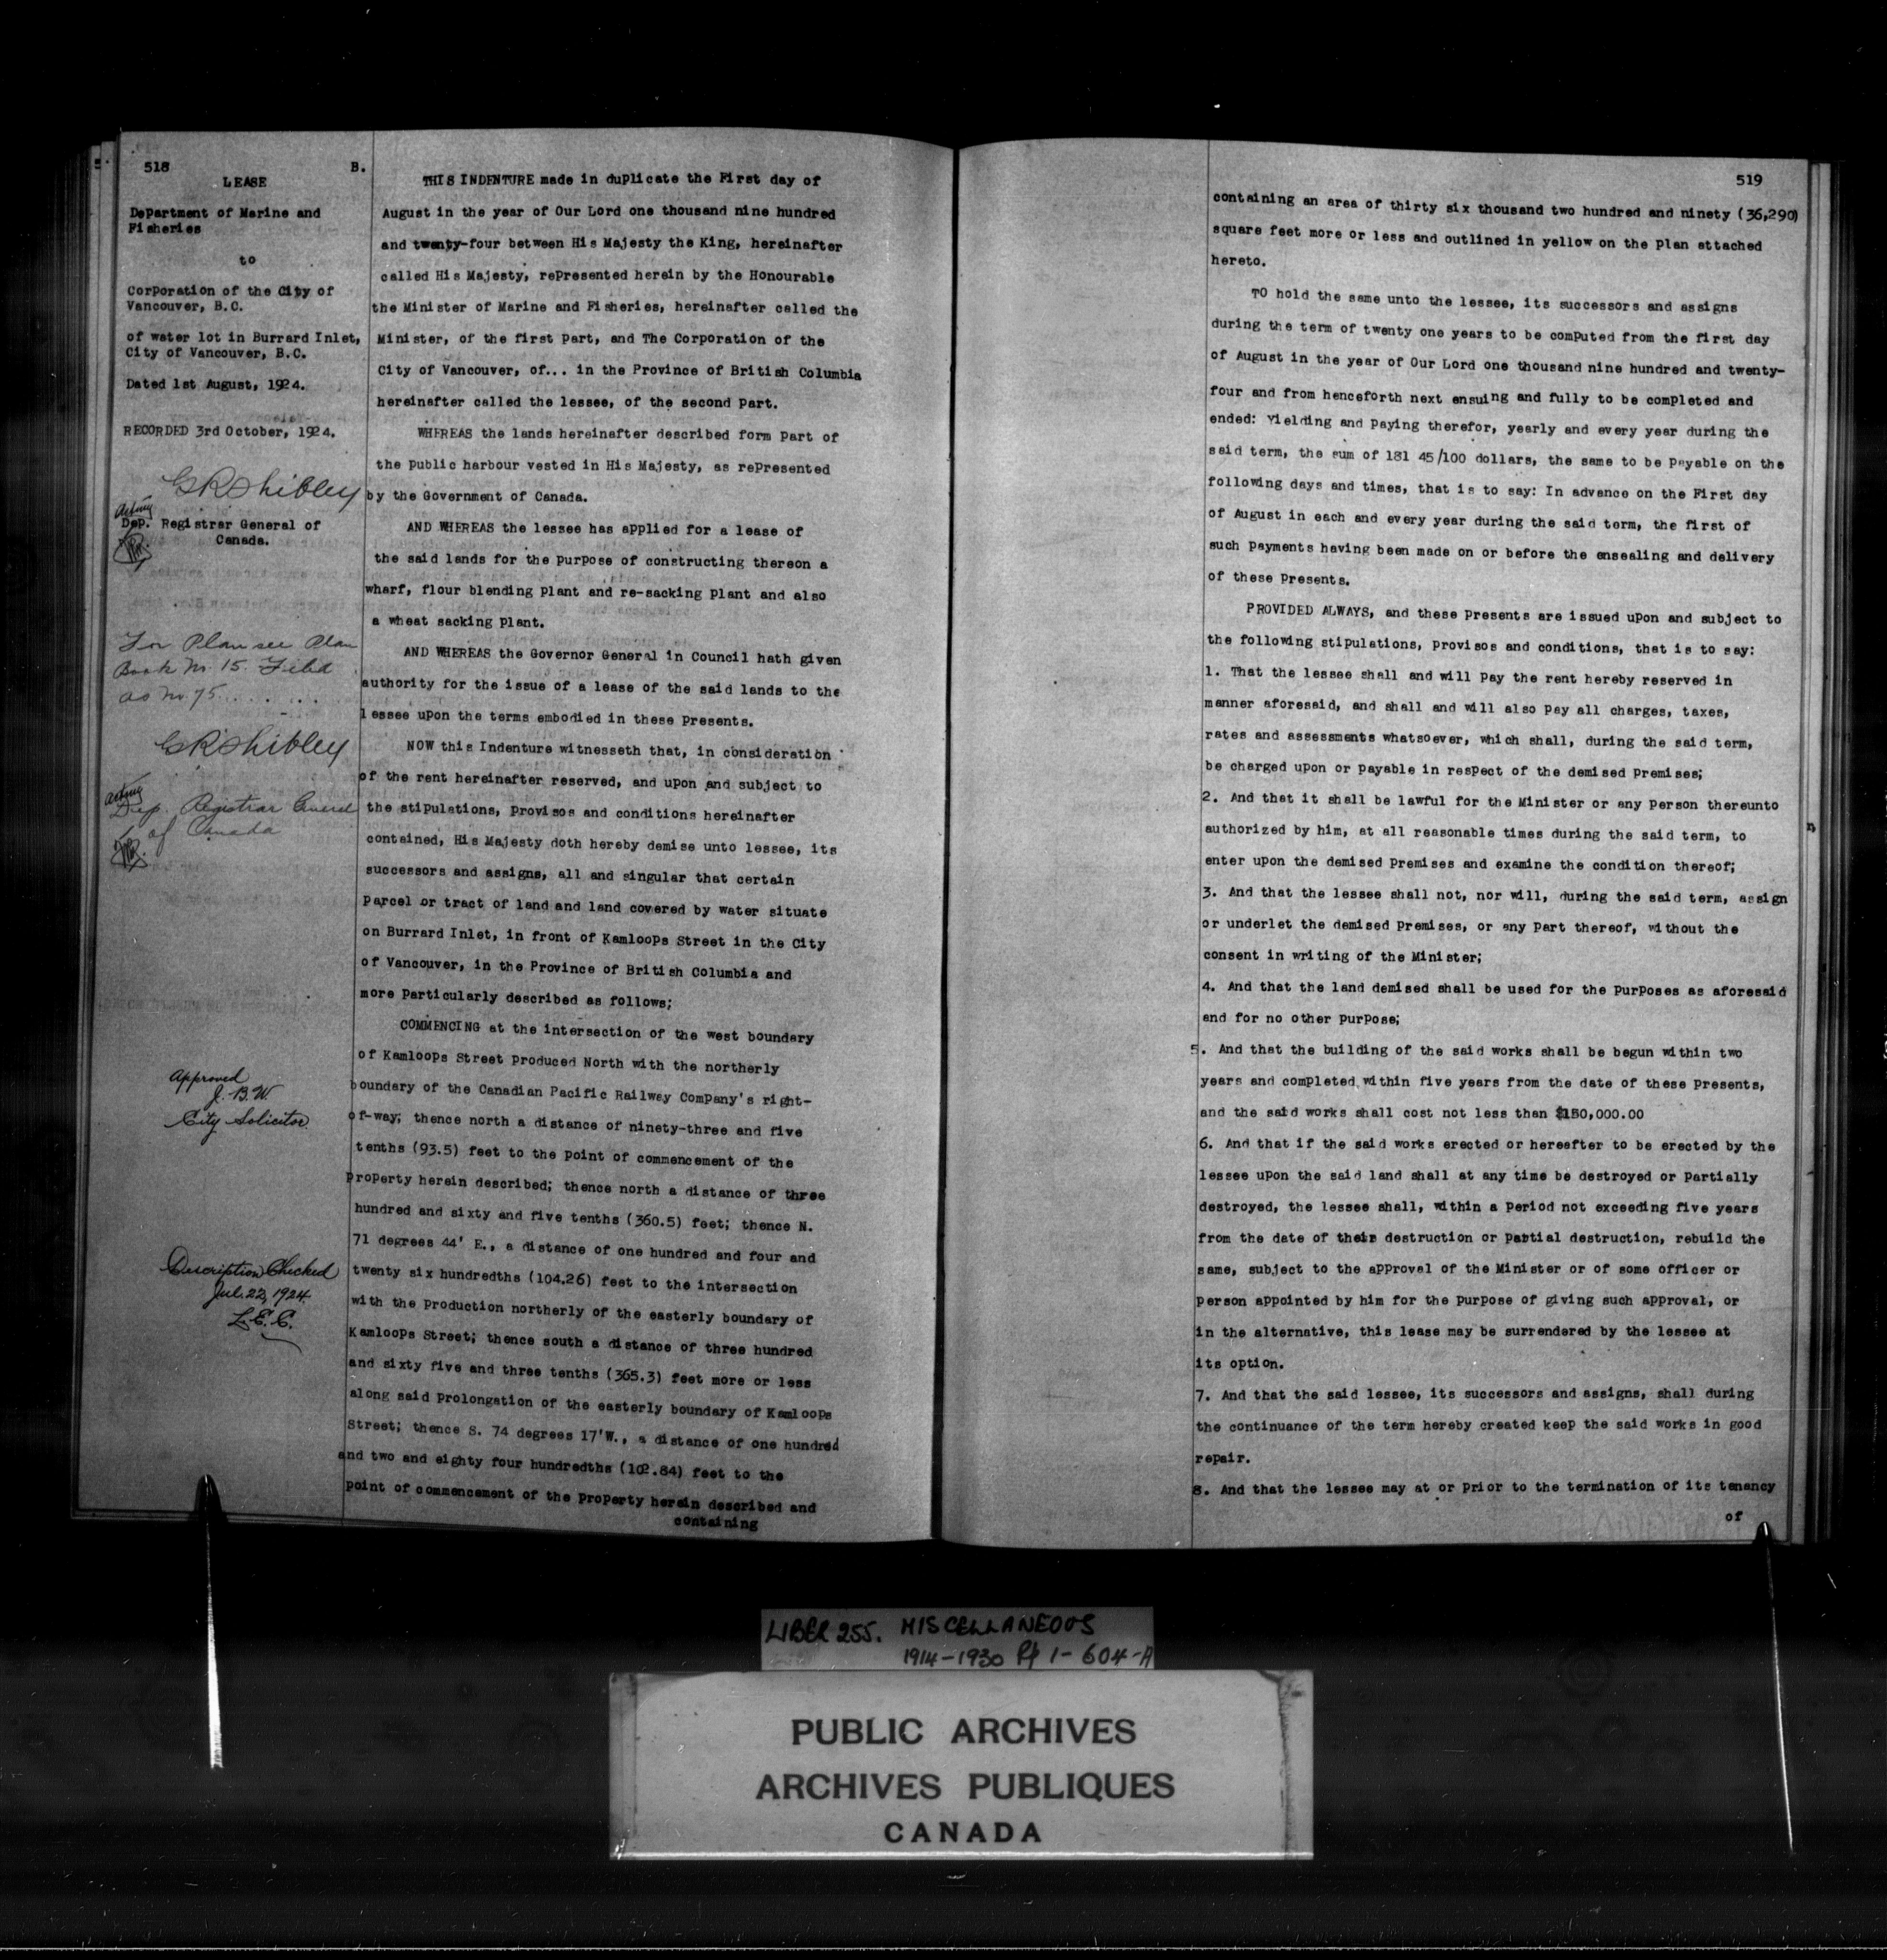 518
B.
LEASE
Department of Marine and
Fisheries
to
Corporation of the City of
Vancouver, B.C.
of water lot in Burrard Inlet,
City of Vancouver, B.C.
Dated 1st August, 1924.
RECORDED 3rd October, 1924.
GRShibley
Acting
Dep. Registrar General of
Canada.
For Plan see Plan
Book No. 15. Filed
as No. 75......
GRShibley
Acting
Dep. Registrar General
of Canada
Approved
J.B.W.
City Solicitor.
Description Checked
Jul. 22, 1924.
L.E.C.
THIS INDENTURE made in duplicate the First day of
August in the year of Our Lord one thousand nine hundred
and twenty-four between His Majesty the King, hereinafter
called His Majesty, represented herein by the Honourable
the Minister of Marine and Fisheries, hereinafter called the
Minister, of the first part, and The Corporation of the
City of Vancouver, of... in the Province of British Columbia
hereinafter called the lessee, of the second part.
WHEREAS the lands hereinafter described form part of
the public harbour vested in His Majesty, as represented
by the Government of Canada.
AND WHEREAS the lessee has applied for a lease of
the said lands for the purpose of constructing thereon a
wharf, flour blending plant and re-sacking plant and also
a wheat sacking plant.
AND WHEREAS the Governor General in Council hath given
authority for the issue of a lease of the said lands to the
lessee upon the terms embodied in these presents.
NOW this Indenture witnesseth that, in consideration
of the rent hereinafter reserved, and upon and subject to
the stipulations, provisos and conditions hereinafter
contained, His Majesty doth hereby demise unto lessee, its
successors and assigns, all and singular that certain
parcel or tract of land and land covered by water situate
on Burrard Inlet, in front of Kamloops Street in the City
of Vancouver, in the Province of British Columbia and
more particularly described as follows;
COMMENCING at the intersection of the west boundary
of Kamloops Street produced North with the northerly
boundary of the Canadian Pacific Railway Company's right-
of-way; thence north a distance of ninety-three and five
tenths (93.5) feet to the point of commencement of the
property herein described; thence north a distance of three
hundred and sixty and five tenths (360.5) feet; thence N.
71 degrees 44' E., a distance of one hundred and four and
twenty six hundredths (104.26) feet to the intersection
with the production northerly of the easterly boundary of
Kamloops Street; thence south a distance of three hundred
and sixty five and three tenths (365.3) feet more or less
along said prolongation of the easterly boundary of Kamloops
Street; thence S. 74 degrees 17'W., a distance of one hundred
and two and eighty four hundredths (102.84) feet to the
point of commencement of the property herein described and
containing
519
containing an area of thirty six thousand two hundred and ninety (36,290)
square feet more or less and outlined in yellow on the plan attached
hereto.
TO hold the same unto the lessee, its successors and assigns
during the term of twenty one years to be computed from the first day
of August in the year of Our Lord one thousand nine hundred and twenty-
four and from henceforth next ensuing and fully to be completed and
ended: Yielding and paying therefor, yearly and every year during the
said term, the sum of 181 45/100 dollars, the same to be payable on the
following days and times, that is to say: In advance on the First day
of August in each and every year during the said term, the first of
such payments having been made on or before the ensealing and delivery
of these presents.
PROVIDED ALWAYS, and these presents are issued upon and subject to
the following stipulations, provisos and conditions, that is to say:
1. That the lessee shall and will pay the rent hereby reserved in
manner aforesaid, and shall and will also pay all charges, taxes,
rates and assessments whatsoever, which shall, during the said term,
be charged upon or payable in respect of the demised premises;
2. And that it shall be lawful for the Minister or any person thereunto
authorized by him, at all reasonable times during the said term, to
enter upon the demised premises and examine the condition thereof;
3. And that the lessee shall not, nor will, during the said term, assign
or underlet the demised premises, or any part thereof, without the
consent in writing of the Minister;
4. And that the land demised shall be used for the purposes as aforesaid
and for no other purpose;
5. And that the building of the said works shall be begun within two
years and completed within five years from the date of these presents,
and the said works shall cost not less than $150,000.00
6. And that if the said works erected or hereafter to be erected by the
lessee upon the said land shall at any time be destroyed or partially
destroyed, the lessee shall, within a period not exceeding five years
from the date of their destruction or partial destruction, rebuild the
same, subject to the approval of the Minister or of some officer or
person appointed by him for the purpose of giving such approval, or
in the alternative, this lease may be surrendered by the lessee at
its option.
7. And that the said lessee, its successors and assigns, shall during
the continuance of the term hereby created keep the said works in good
repair.
8. And that the lessee may at or prior to the termination of its tenancy
of
LIBER 255. MISCELLANEOUS
1914-1930 Pp 1-604-A
PUBLIC ARCHIVES
ARCHIVES PUBLIQUES
CANADA